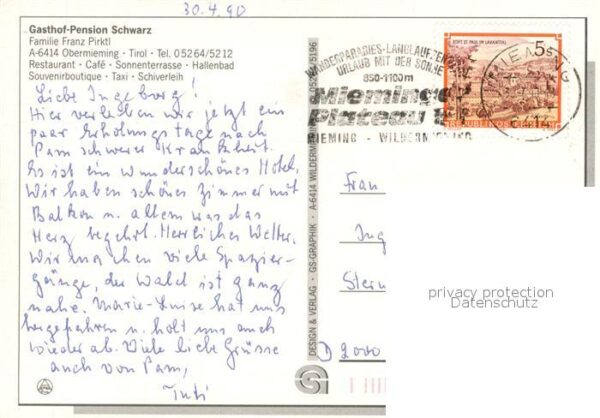 30.4.90
Gasthof-Pension Schwarz
Familie Franz Pirktl
A-6414 Obermieming · Tirol · Tel. 05264/5212
Restaurant · Café · Sonnenterrasse · Hallenbad
Souvenirboutique · Taxi · Schiverleih
Liebe Ingeborg!
Hier verleben wir jetzt ein
paar Erholungstage nach
Pam schwerer Krankheit.
Es ist ein wunderschönes Hotel,
Wir haben schönes Zimmer mit
Balkon u. allem was das
Herz begehrt. Herrliches Wetter.
Wir machen viele Spazier-
gänge, der Wald ist ganz
nahe. Marie-Luise hat uns
hergefahren u. holt uns auch
wieder ab. Viele liebe Grüsse
auch von Pam,
DESIGN & VERLAG · GS-GRAPHIK · A-6414 WILDERMIEMING
WANDERPARADIES-LANGLAUFZEN
URLAUB MIT DER SONNE
850-1100m
Mieminger
Plateau
MIEMING - WILDERMIEMING
STIFT ST. PAUL IM LAVANTTAL
5s
REPUBLIK ÖSTERREICH
6414
Frau
Ing
Stern
D 2000
privacy protection
Datenschutz
GS